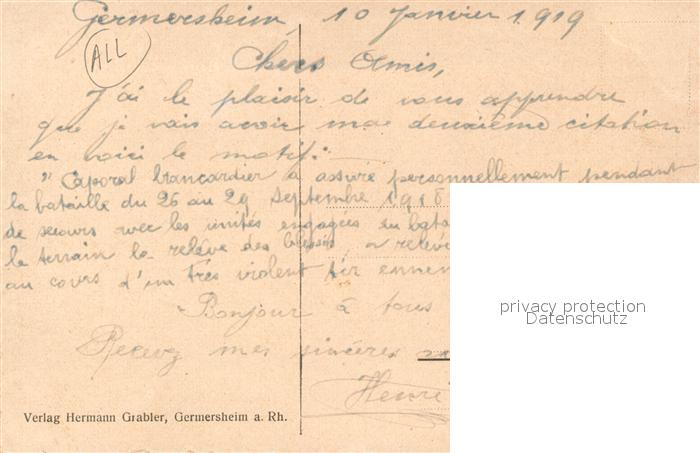 Germersheim, 10 Janvier 1919
ALL
Chers Amis,
J'ai le plaisir de vous apprendre
que je vais avoir ma deuxième citation
en voici le motif:
"Caporal brancardier a assuré personnellement pendant
la bataille du 26 au 29 Septembre 1918
de secours avec les unités engagées du bata
le terrain la relève des blessés a relevé
au cours d'un très violent tir ennem
Bonjour à tous
Recevez mes sincères
Henri
privacy protection
Datenschutz
Verlag Hermann Grabler, Germersheim a. Rh.